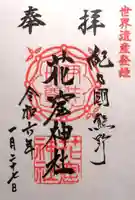 世界遺産登録
拝
紀の國熊野
奉
花窟神社
令和六年
一月二十七日